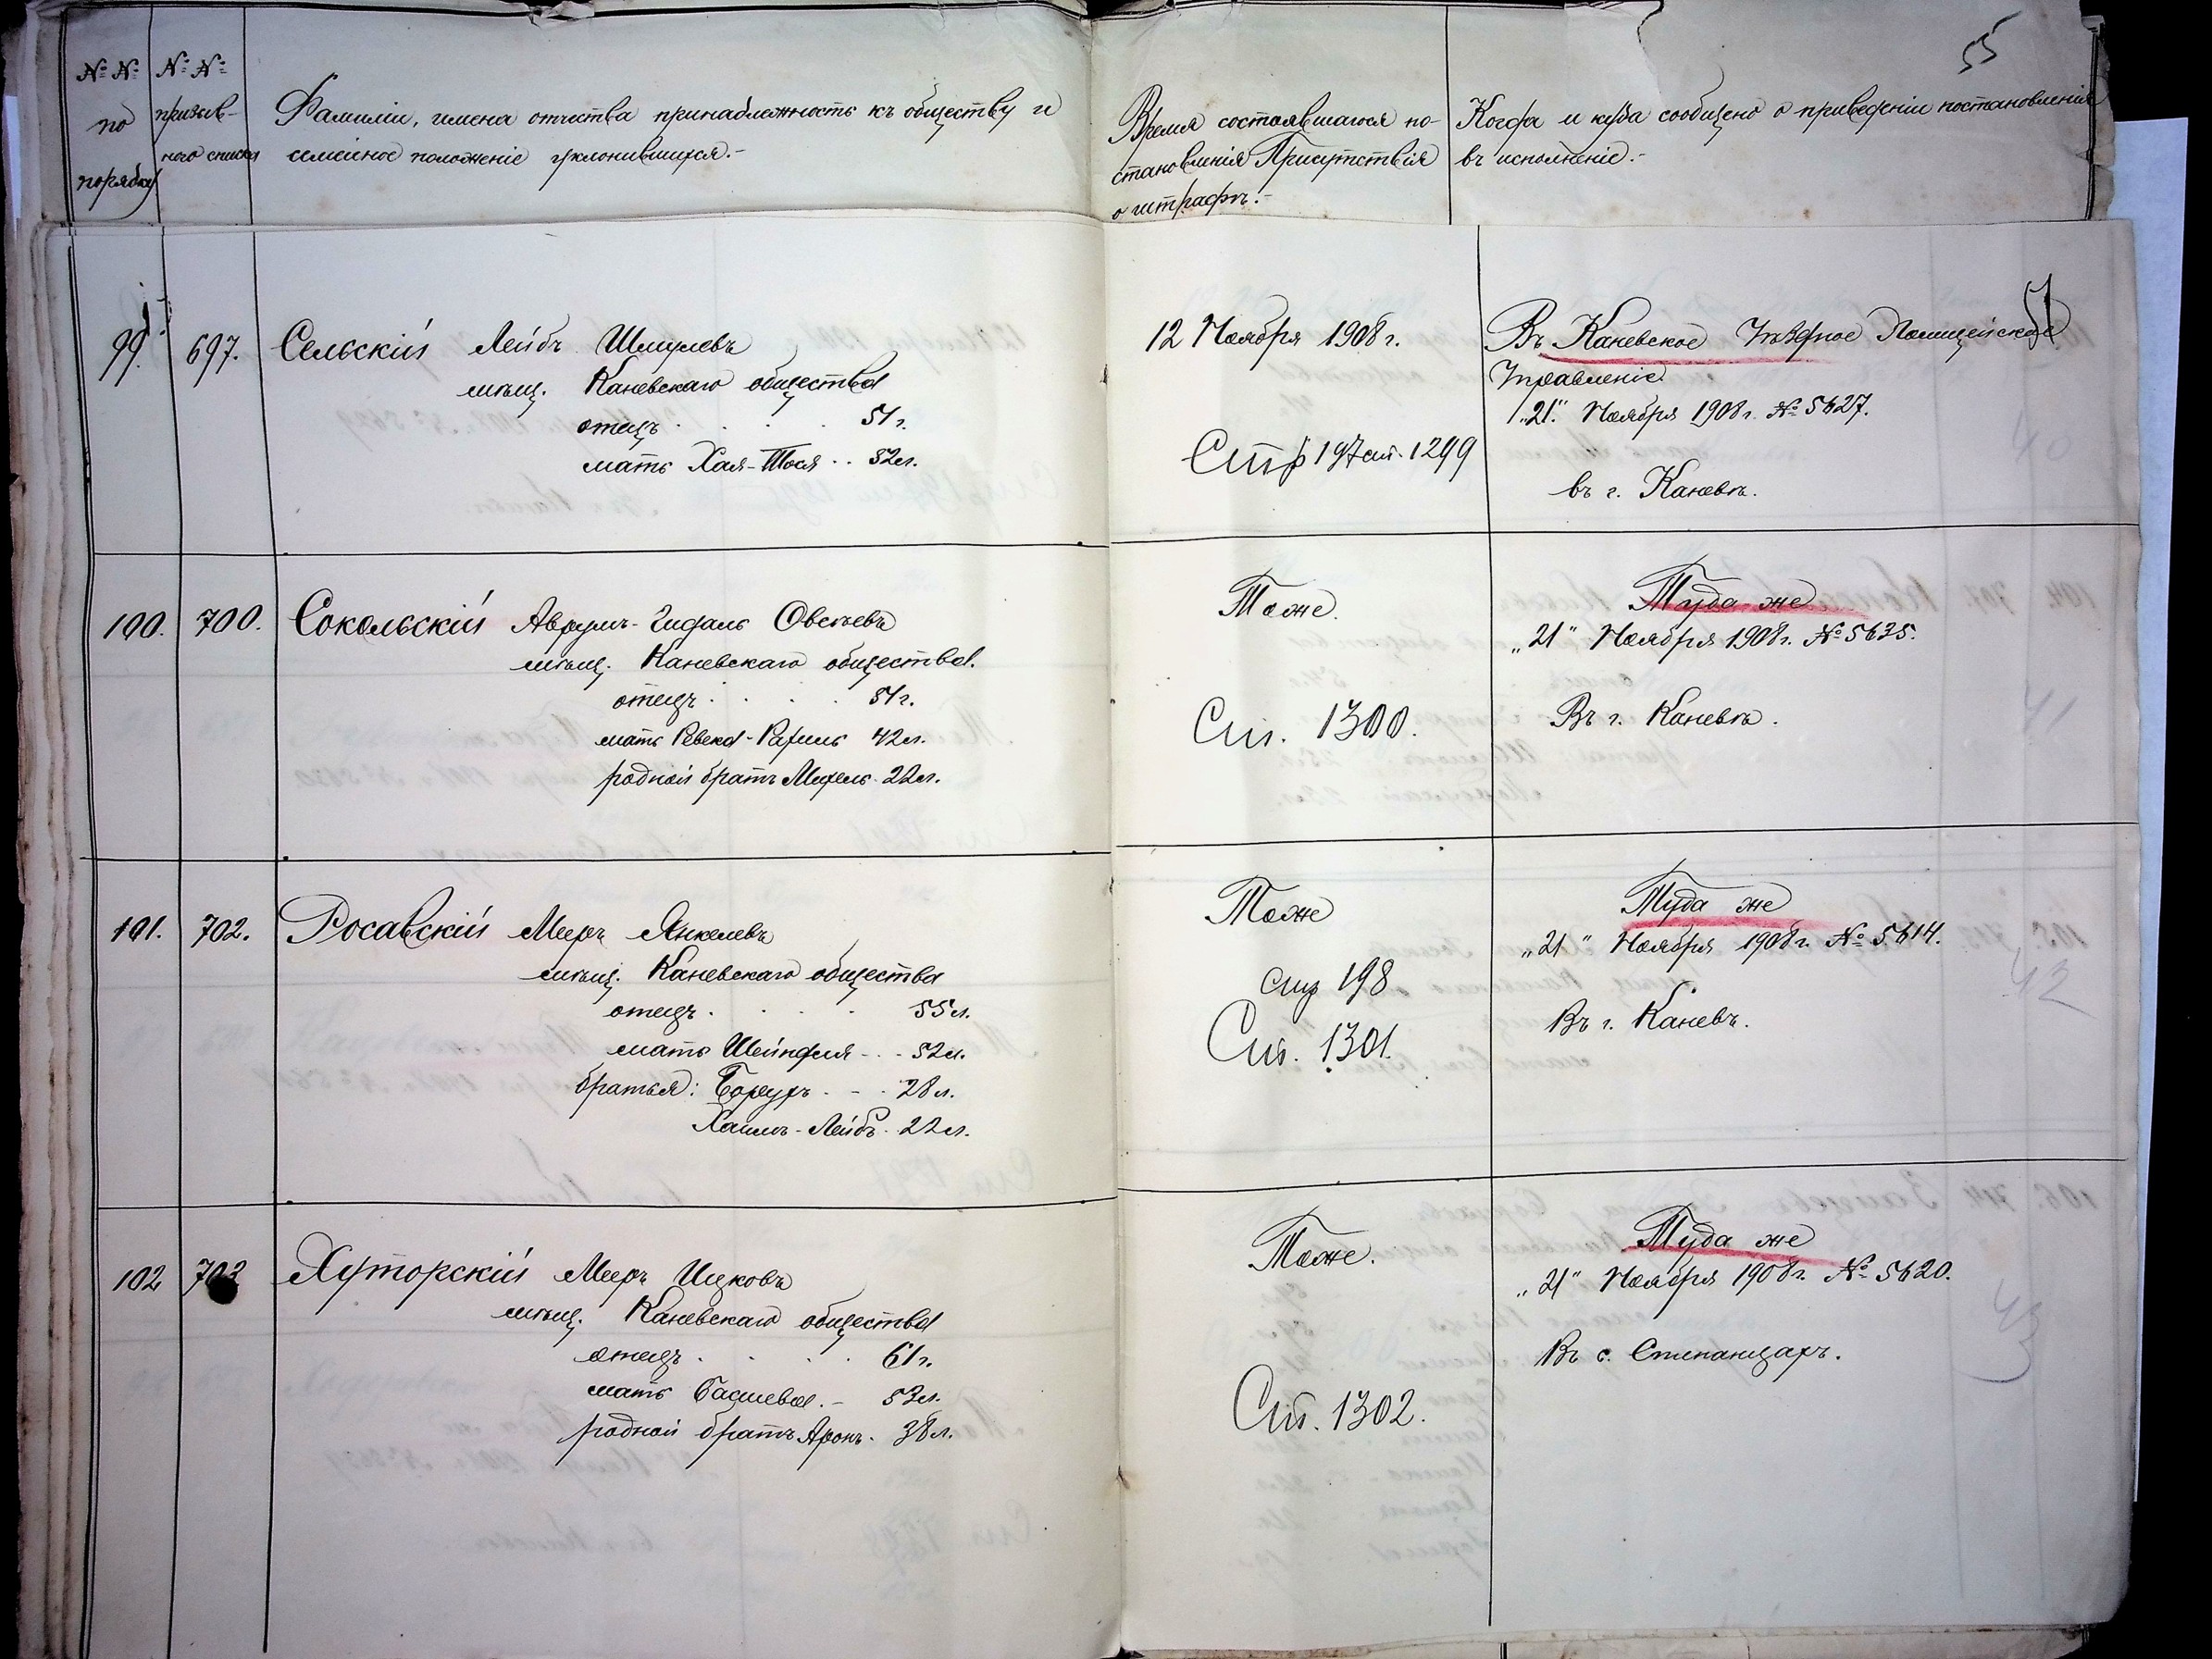 55
№ № по порядку
№ № призыв-
ного списка
Фамиліи, имена отчества принадлежность къ обществу и
семейное положеніе уклонившихся.-
Время состоявшагося по-
становленія Присутствія
о штрафѣ.-
Когда и куда сообщено о приведеніи постановленія
въ исполненіе.-
99. 697. Сельскій Лейбъ Шмулевъ
мѣщ. Каневскаго общества
отецъ . . . . 51 г.
мать Хая-Тося . . 52 л.
12 Ноября 1908 г.
1299
Въ Каневское Уѣздное Полицейское
Управленіе
"21" Ноября 1908 г. № 5627.
въ г. Каневѣ.
100. 700. Сокольскій Аврумъ-Гидаль Овсѣевъ
мѣщ. Каневскаго общества.
отецъ . . . . 51 г.
мать Ревека-Рахиль 42 л.
родной братъ Мехель. 22 л.
Тоже.
Сп. 1300.
Туда же
"21" Ноября 1908 г. № 5635.
Въ г. Каневѣ.
101. 702. Росавскій Меръ Янкелевъ
мѣщ. Каневскаго общества
отецъ . . . . 55 л.
мать Шейндля - . - 52 л.
братья: Борухъ . - . 28 л.
Хаимъ-Лейбъ. 22 л.
Тоже
стр 198
Сп. 1301.
Туда же
"21" Ноября 1908 г. № 5614.
Въ г. Каневъ.
102 703 Хуторскій Меръ Ицковъ
мѣщ. Каневскаго общества
отецъ . . . . 61 г.
мать Басшева . - 53 л.
родной братъ Аронъ. 38 л.
Тоже.
Сп. 1302.
Туда же
"21" Ноября 1908 г. № 5620.
Въ с. Степанцахъ.